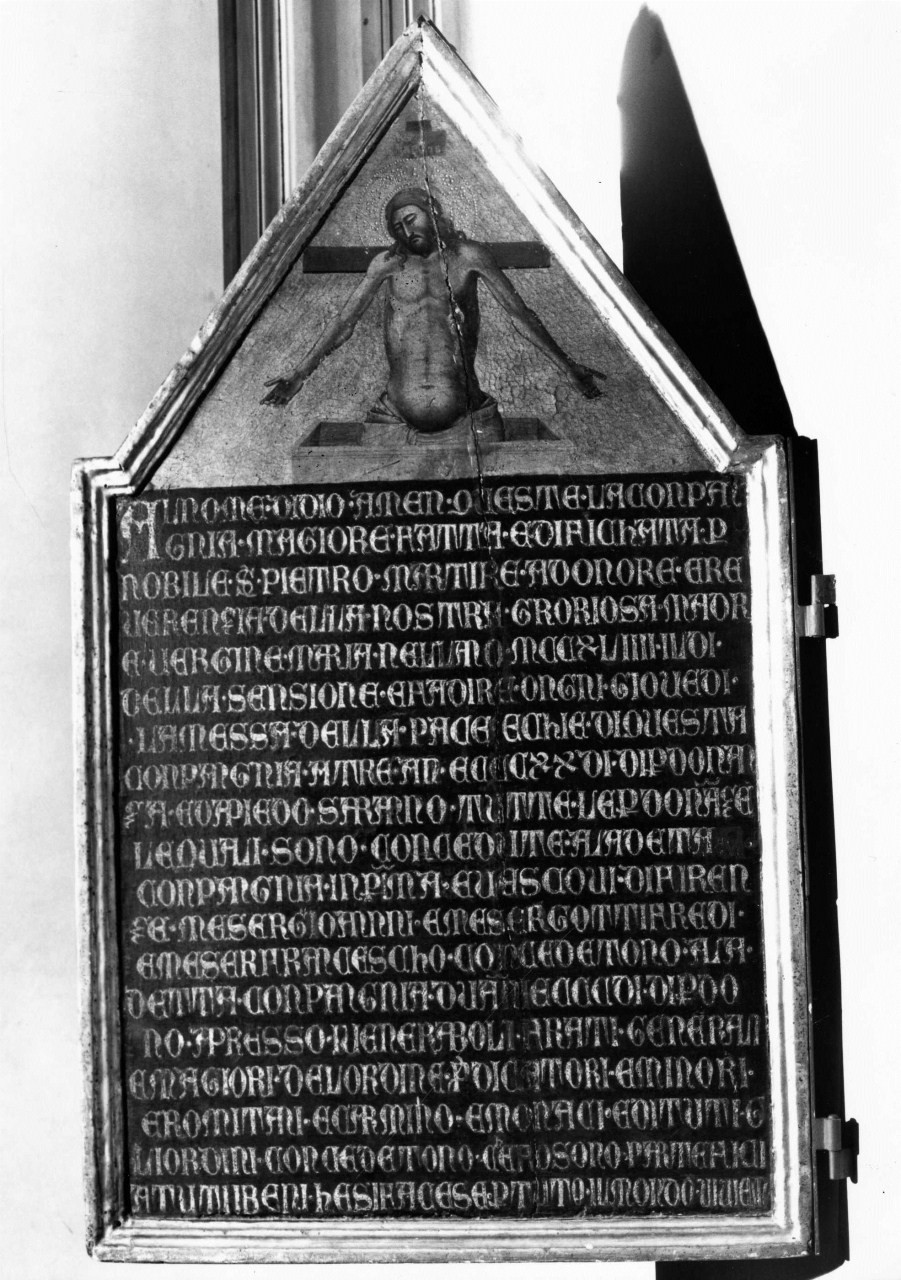 ALNOME·DIDIO·AMEN·QUESTE·LACONPAN
GNIA·MAGIORE·FATTA·EDIFICHATA·P
NOBILE·S·PIETRO·MARTIRE·ADONORE·ERE
UERENÇIA·DELLA·NOSTRA·GRORIOSA·MADR
E·UERGINE·MARIA·NELLANO·MCCXLIIII·ILDI·
DELLA·SENSIONE·EFADIRE·ONGNI·GIOUEDI·
·LAMESSA·DELLA·PACE·ECHIE·DIQUESTA
CONPANGNIA·ATRE·AN·ECCCXX·DI·DIPDONAN
ÇA·EDAPIEDO·SARANNO·TUTTE·LEPDONAÇE
LEQUALI·SONO·CONCEDUTE·ALADETA
CONPANGNIA·INPIMA·EUESCOUI·DIFIREN
ÇE·MESERGIOANNI·EMESERGOTTIFREDI·
EMESERFRANCESCHO·CONCEDETONO·ALA·
DETTA·CONPANGNIA·QUANECCCDI·DIPDO
NO·APRESSO·IUENERABOLI·FRATI·GENERALI
EMAGIORI·DELORDINE·PDICATORI·EMINORI·
EROMITANI·ECARMINO·EMONACI·EDITUTI·G
LIORDINI·CONCEDETONO·CHEPOSONO·PARTEFICI
ATUTIIBENI·HESIFACESEPTUTO·ILMONDO·